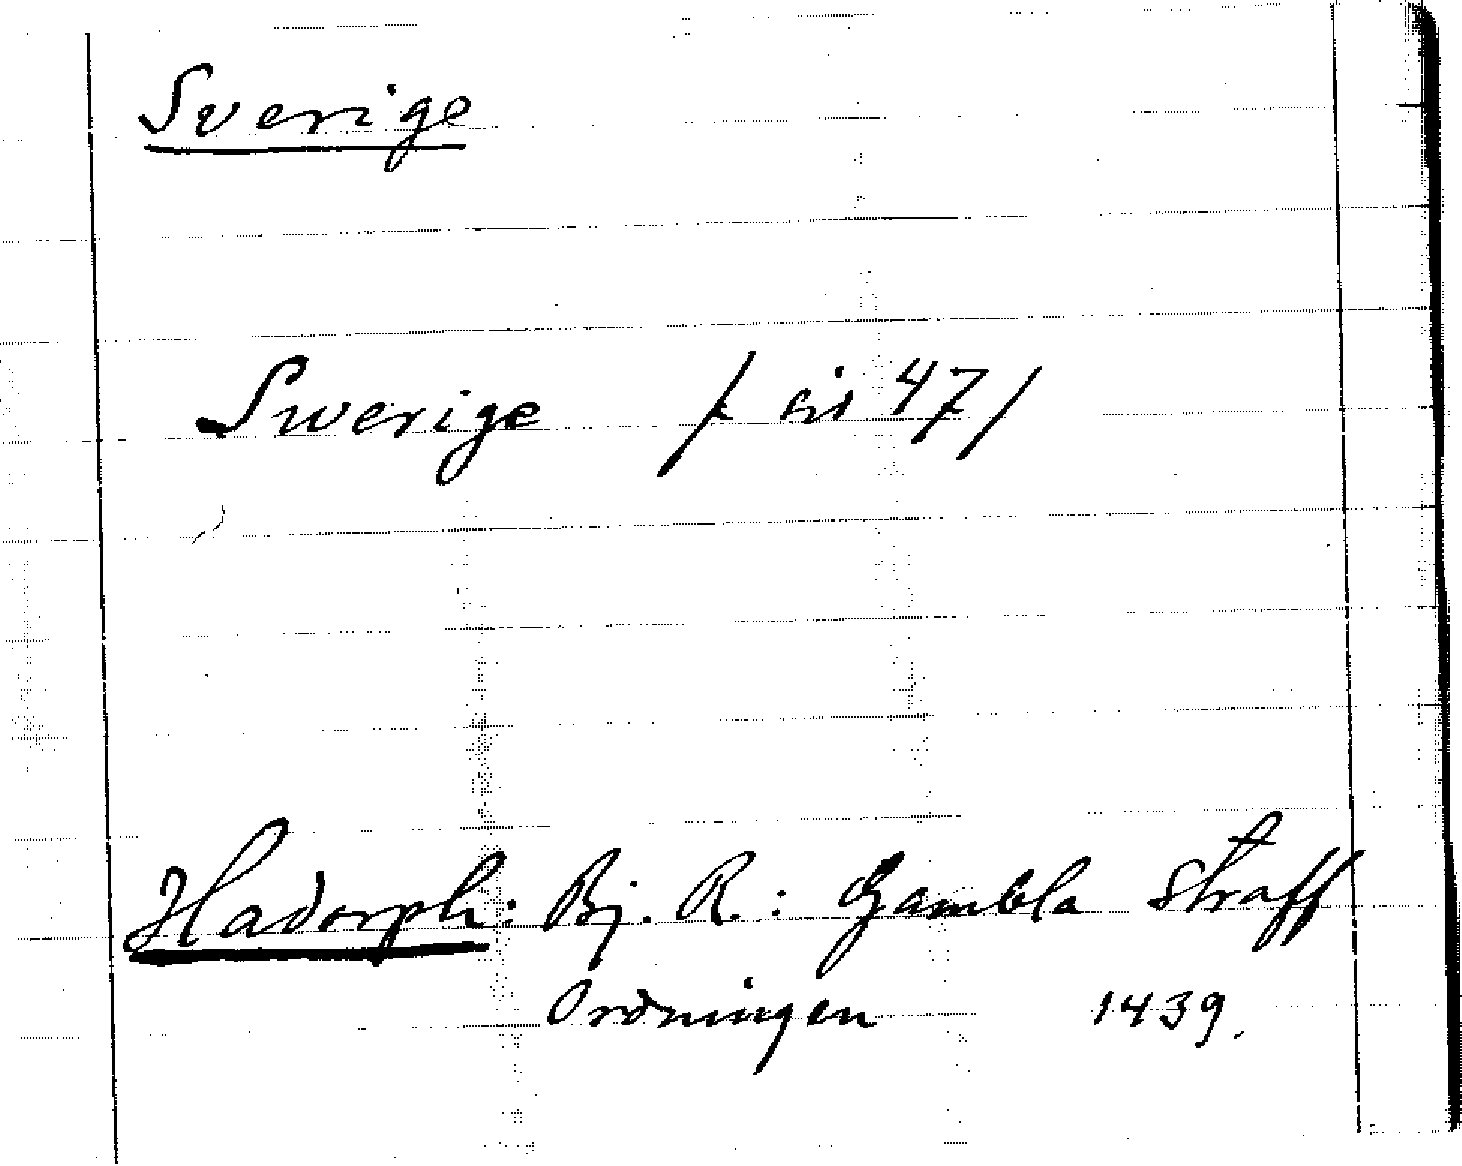 Sverige
Swerige /: sid 47/
Hadorph: Bj. R.: Gambla Straff
Ordningen 1439.